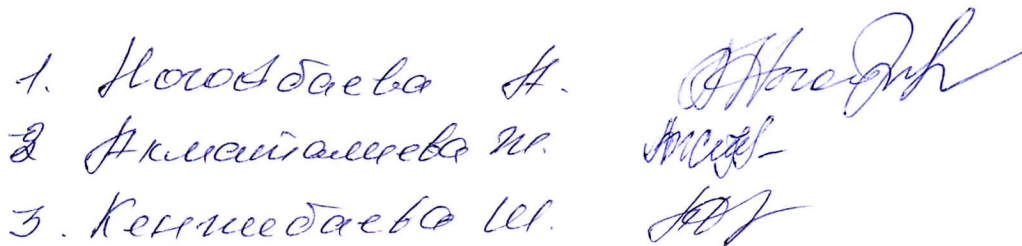 1. Ногойбаева А.
2 Акматалиева Ж.
3. Кенжебаева Ш.